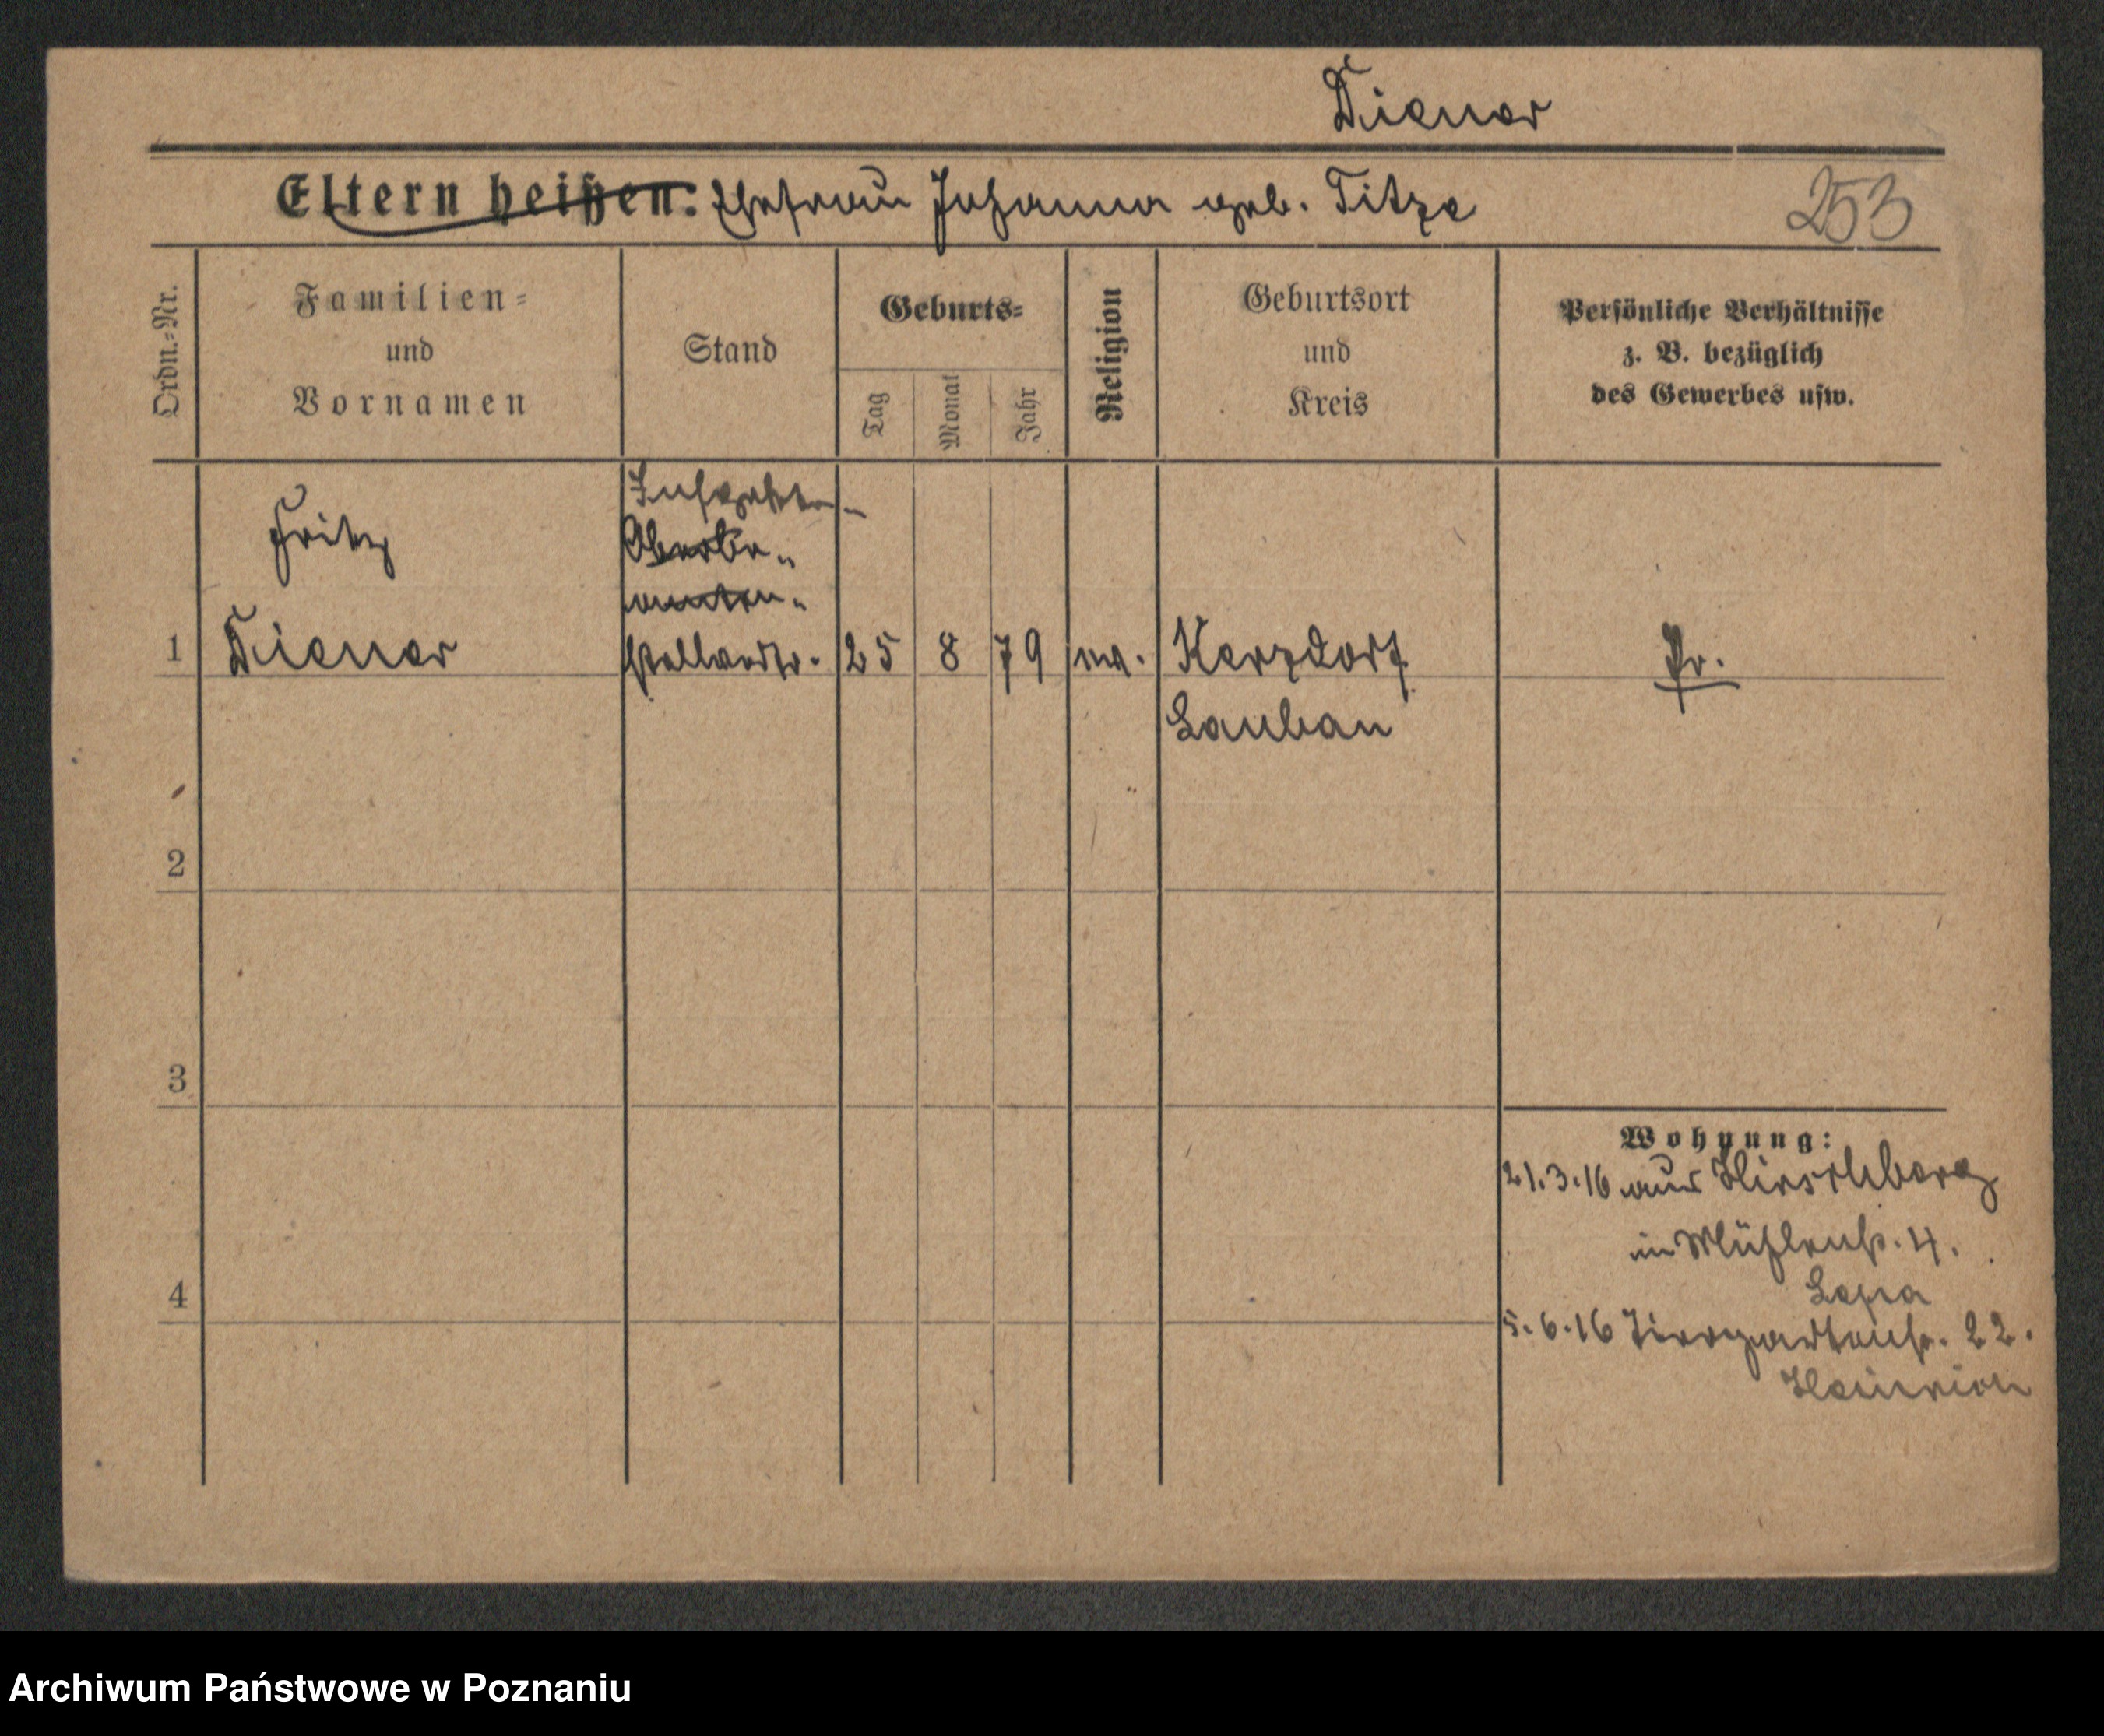 Diener
Eltern heißen: Ehefrau Johanna geb. Titze
253
Ordn.=Nr.
Familien=
und
Vornamen
Stand
Geburts=
Tag
Monat
Jahr
Religion
Geburtsort
und
Kreis
Persönliche Verhältnisse
z. B. bezüglich
des Gewerbes usw.
Fritz
1 Diener
25 8 79 Kerzdorf
Lauban
Pr.
2
3
4
Wohnung:
21.3.16 aus Hirschberg
in Mühlenstr. 4.
5.6.16 Tiergartenstr. 22.
Archiwum Państwowe w Poznaniu